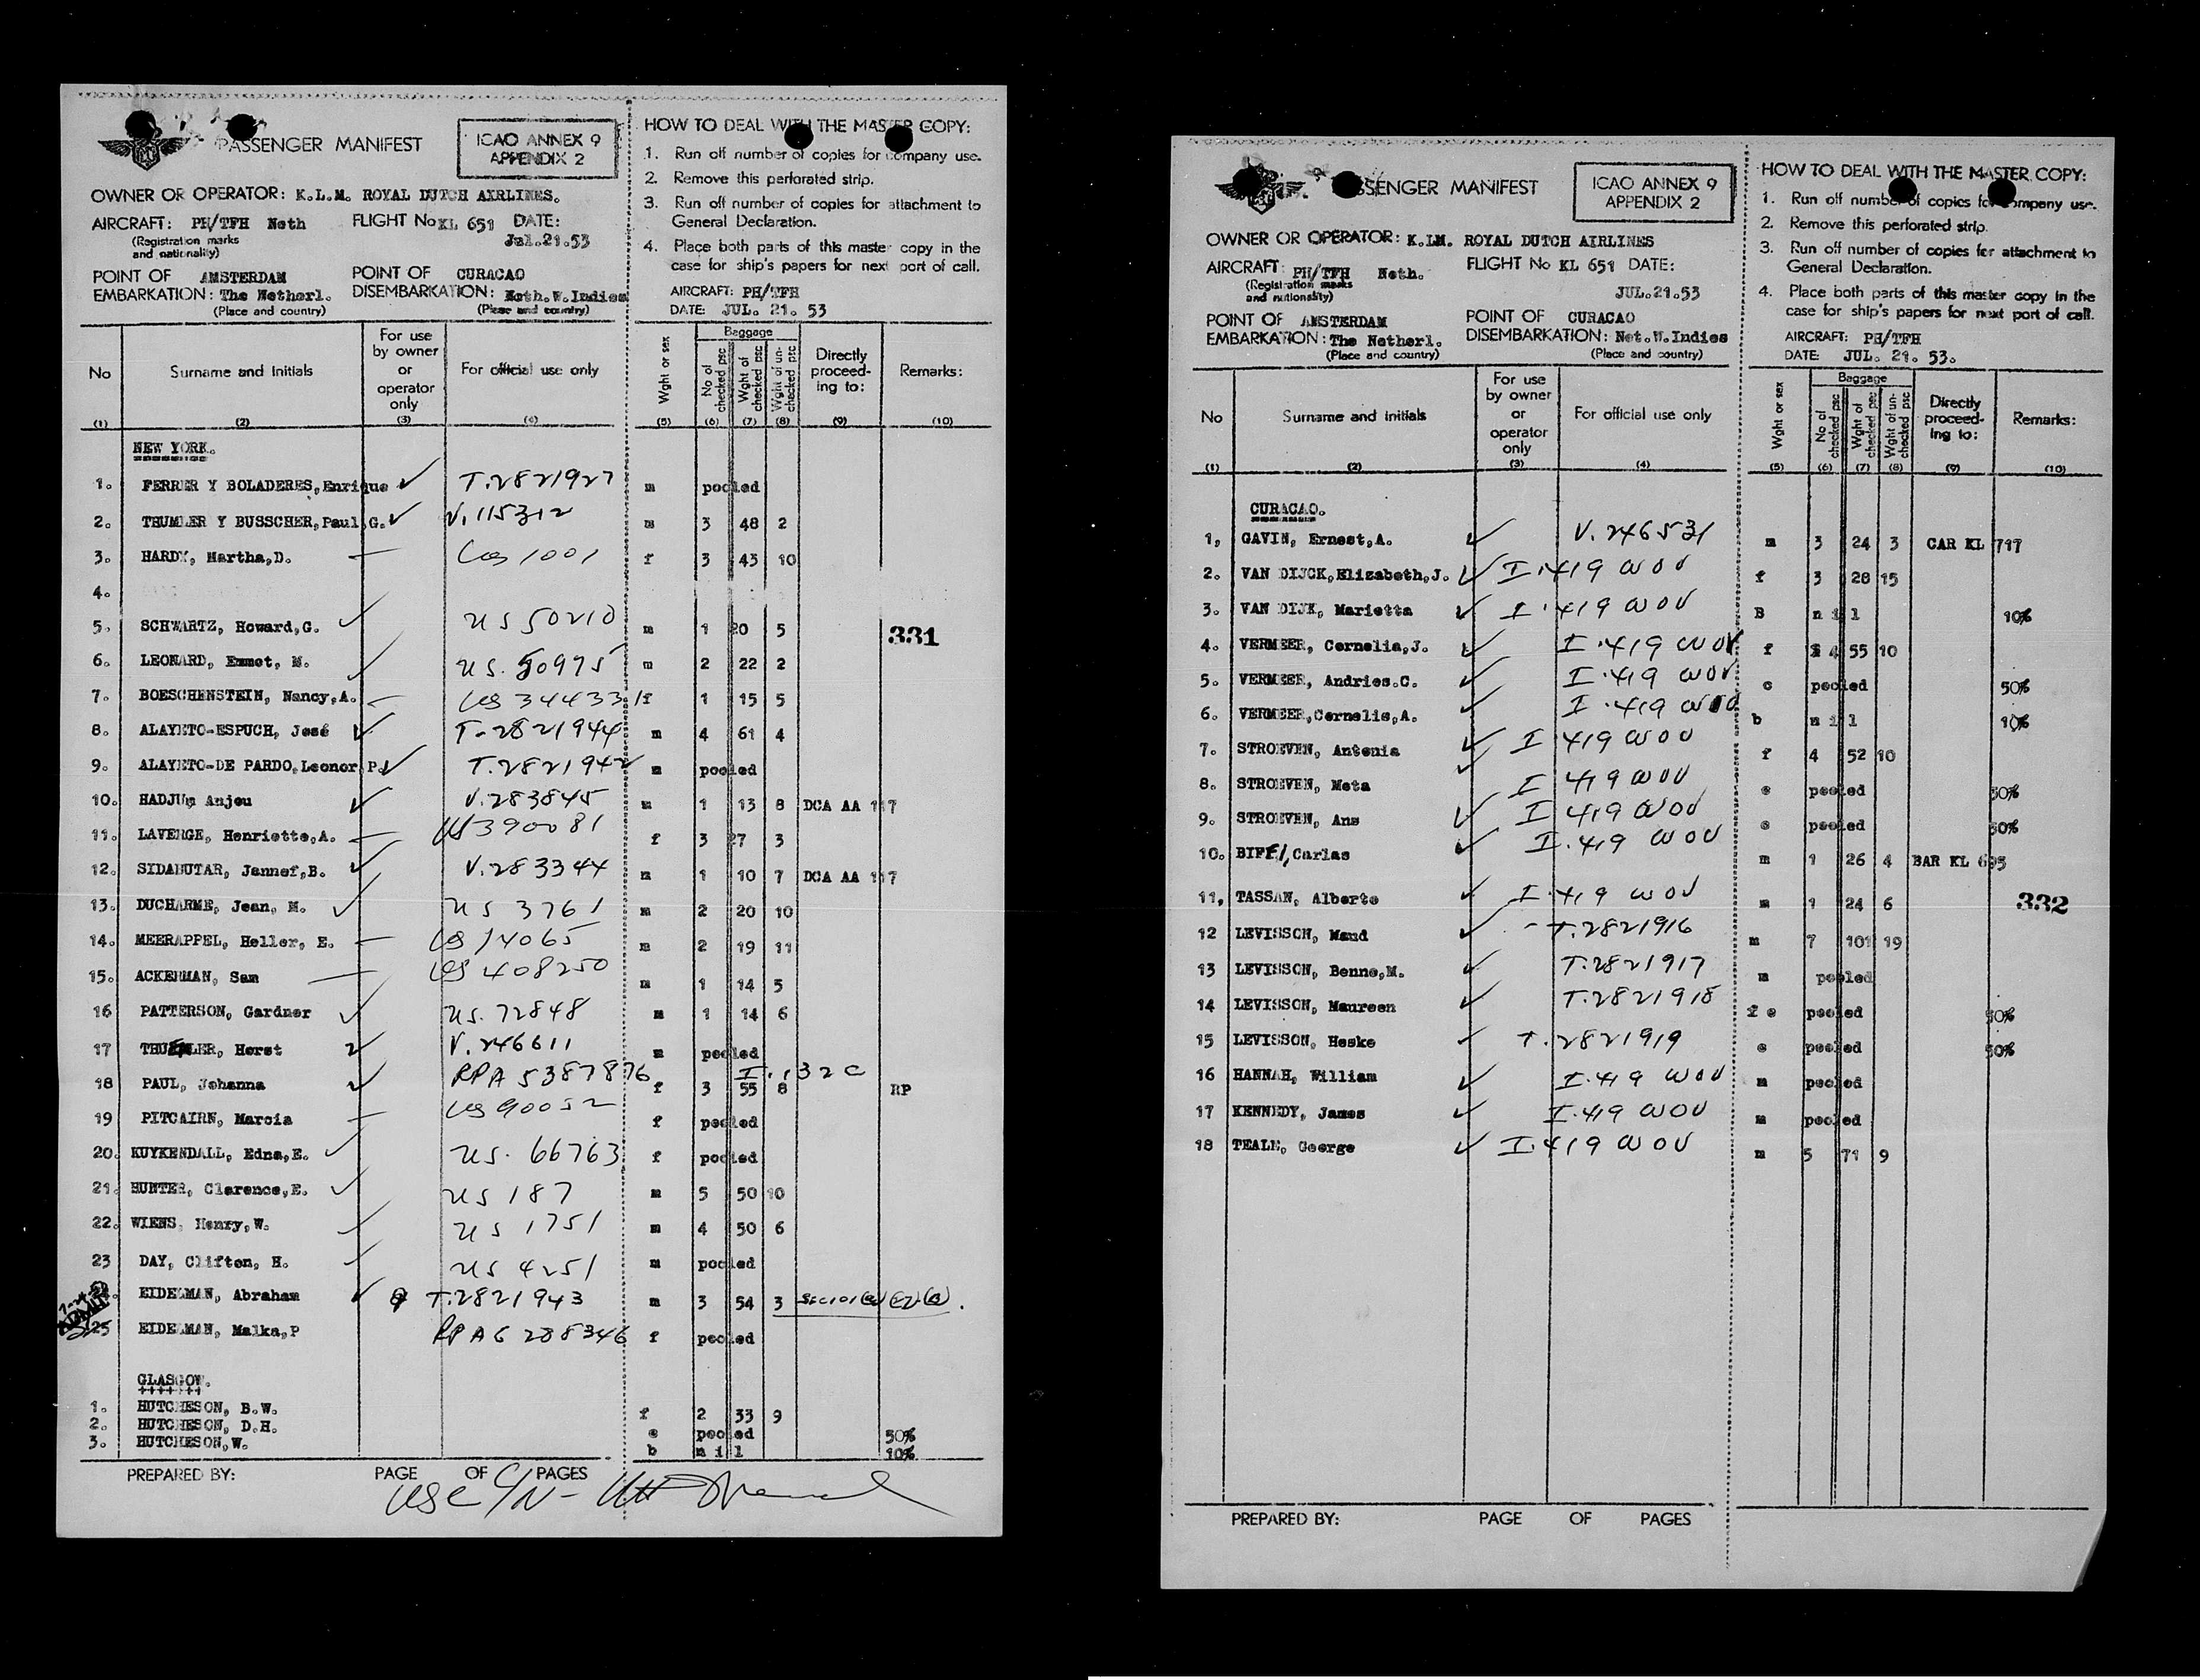 PASSENGER MANIFEST
ICAO ANNEX 9
APPENDIX 2
OWNER OR OPERATOR: K.L.M. ROYAL DUTCH AIRLINES.
AIRCRAFT: PH/TFH Neth FLIGHT No KL 651 DATE:
(Registration marks and nationality) Jul.21.53
POINT OF EMBARKATION: AMSTERDAM The Netherl. POINT OF DISEMBARKATION: CURACAO Neth.W.Indies
(Place and country) (Place and country)
HOW TO DEAL WITH THE MASTER COPY:
1. Run off number of copies for company use.
2. Remove this perforated strip.
3. Run off number of copies for attachment to General Declaration.
4. Place both parts of this master copy in the case for ship's papers for next port of call.
AIRCRAFT: PH/TFH
DATE: JUL. 21. 53
No Surname and Initials For use by owner or operator only For official use only Wght or sex Baggage No of checked psc Wght of checked psc Wght of un-checked psc Directly proceed-ing to: Remarks:
(1) (2) (3) (4) (5) (6) (7) (8) (9) (10)
NEW YORK.
1. FERRER Y BOLADERES, Enrique T.2821927 m pooled
2. THUMLER Y BUSSCHER, Paul G. V.115312 m 3 48 2
3. HARDY, Martha,D. 1001 f 3 43 10
4.
5. SCHWARTZ, Howard,G. US 50210 m 1 20 5
331
6. LEONARD, Emmet, M. US. 50975 m 2 22 2
7. BOESCHENSTEIN, Nancy,A. f 1 15 5
8. ALAYETO-ESPUCH, José T-2821944 m 4 61 4
9. ALAYETO-DE PARDO,Leonor P. T.2821942 m pooled
10. HADJUm Anjou V.283845 m 1 13 8 DCA AA 117
11. LAVERGE, Henriette,A. US 390081 f 3 27 3
12. SIDABUTAR, Jannef,B. V.283344 m 1 10 7 DCA AA 117
13. DUCHARME, Jean, M. US 3761 m 2 20 10
14. MEERAPPEL, Heller, E. 14065 m 2 19 11
15. ACKERMAN, Sam 408250 m 1 14 5
16 PATTERSON, Gardner US. 72848 m 1 14 6
17 Horst V.246611 m pooled
18 PAUL, Johanna RPA 5387876 f 3 55 8 RP
19 PITCAIRN, Marcia 90052 f pooled
20. KUYKENDALL, Edna,E. US. 66763 f pooled
21. HUNTER, Clarence,E. US 187 m 5 50 10
22. WIENS, Henry,W. US 1751 m 4 50 6
23 DAY, Clifton, H. US 4251 m pooled
EIDELMAN, Abraham T.2821943 m 3 54 3
25 EIDELMAN, Malka,P RPA 6 288346 f pooled
GLASGOW.
1. HUTCHESON, B.W. f 2 33 9
2. HUTCHESON, D.H. c pooled 50%
3. HUTCHESON,W. b nil 10%
PREPARED BY: PAGE OF PAGES
PASSENGER MANIFEST
ICAO ANNEX 9
APPENDIX 2
OWNER OR OPERATOR: K.LM. ROYAL DUTCH AIRLINES
AIRCRAFT: PH/TFH Neth. FLIGHT No KL 651 DATE:
(Registration marks and nationality) JUL.21.53
POINT OF EMBARKATION: AMSTERDAM The Netherl. POINT OF DISEMBARKATION: CURACAO Net.W.Indies
(Place and country) (Place and country)
HOW TO DEAL WITH THE MASTER COPY:
1. Run off number of copies for company use.
2. Remove this perforated strip.
3. Run off number of copies for attachment to General Declaration.
4. Place both parts of this master copy in the case for ship's papers for next port of call.
AIRCRAFT: PH/TFH
DATE: JUL. 21. 53.
No Surname and Initials For use by owner or operator only For official use only Wght or sex Baggage No of checked psc Wght of checked psc Wght of un-checked psc Directly proceed-ing to: Remarks:
(1) (2) (3) (4) (5) (6) (7) (8) (9) (10)
CURACAO.
1, GAVIN, Ernest,A. V.246531 m 3 24 3 CAR KL 717
2. VAN DIJCK,Elizabeth,J. I.419 WOV f 3 28 15
3. VAN DIJK, Marietta I.419 WOV B nil 10%
4. VERMEER, Cornelia,J. I.419 WOV f 4 55 10
5. VERMEER, Andries.C. I.419 WOV c pooled 50%
6. VERMEER,Cornelis,A. I.419 WOV b nil 10%
7. STROEVEN, Antonia I 419 WOV f 4 52 10
8. STROEVEN, Meta I 419 WOV c pooled 50%
9. STROEVEN, Ans I 419 WOV c pooled 50%
10. BIFFI, Carlas I.419 WOV m 1 26 4 BAR KL 695
11, TASSAN, Alberto I.419 WOV m 1 24 6
332
12 LEVISSON, Maud T.2821916 m 7 101 19
13 LEVISSON, Benno,M. T.2821917 m pooled
14 LEVISSON, Maureen T.2821918 pooled 50%
15 LEVISSON, Heske T.2821919 c pooled 50%
16 HANNAH, William I.419 WOV m pooled
17 KENNEDY, James I.419 WOV m pooled
18 TEALE, George I.419 WOV m 5 71 9
PREPARED BY: PAGE OF PAGES